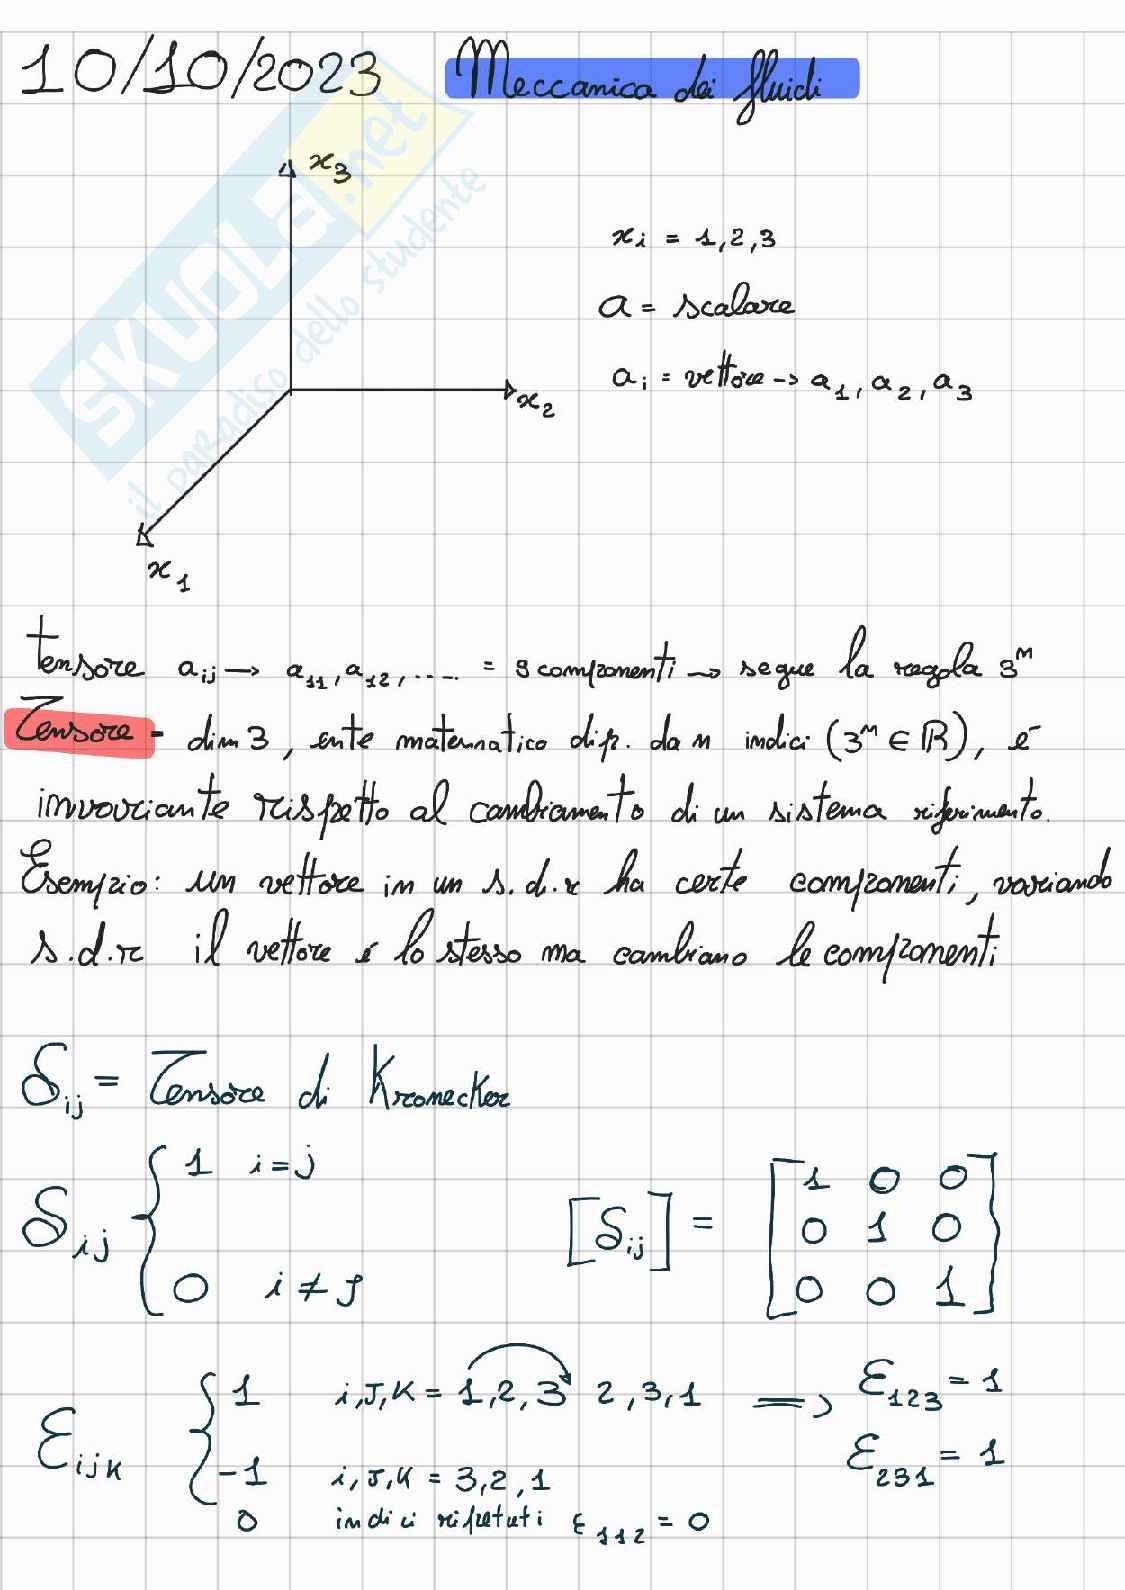 10/10/2023 Meccanica dei fluidi
SKUOLA.net
il paradiso dello studente
x₃
xᵢ = 1,2,3
a = scalare
aᵢ = vettore → a₁, a₂, a₃
x₂
x₁
Tensore aᵢⱼ → a₁₁, a₁₂, ..... = 9 componenti → segue la regola 3ⁿ
Tensore - dim 3, ente matematico dip. da n indici (3ⁿ ∈ ℝ), é
invariante rispetto al cambiamento di un sistema riferimento.
Esempio: un vettore in un s.d.r ha certe componenti, variando
s.d.r il vettore é lo stesso ma cambiano le componenti
δᵢⱼ = Tensore di Kronecker
δᵢⱼ { 1 i = j
0 i ≠ j
[δᵢⱼ] = [1 0 0
0 1 0
0 0 1]
εᵢⱼₖ { 1 i,J,K = 1,2,3 2,3,1 ⟹ ε₁₂₃ = 1
ε₂₃₁ = 1
-1 i,J,K = 3,2,1
0 indici ripetuti ε₁₁₂ = 0